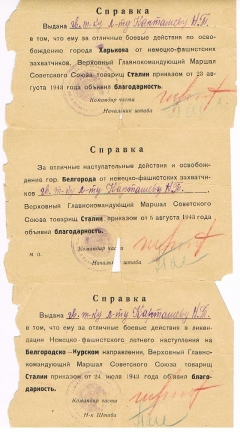 Справка
Выдана гв. т-ку л-ту Карташеву Н.В.
в том, что ему за отличные боевые действия по
освобождению города Харькова от немецко-фашистских
захватчиков, Верховный Главнокомандующий Маршал
Советского Союза товарищ Сталин приказом от 23 августа
1943 года объявил благодарность.
Командир части
Начальник штаба
Справка
За отличные наступательные действия и освобождение
гор. Белгорода от немецко-фашистских захватчиков
гв. т-ку л-ту Карташеву Н.В.
Верховный Главнокомандующий Маршал Советского
Союза товарищ Сталин приказом от 5 августа 1943 года
объявил благодарность.
Командир части
Справка
Выдана гв. т-ку л-ту Карташеву Н.В.
в том, что ему за отличные боевые действия в ликвидации
Немецко-фашистского летнего наступления на
Белгородско-Курском направлении, Верховный Главнокомандующий
Маршал Советского Союза товарищ
Сталин приказом от 24 июля 1943 года объявил благодарность.
Командир части
Н-к Штаба